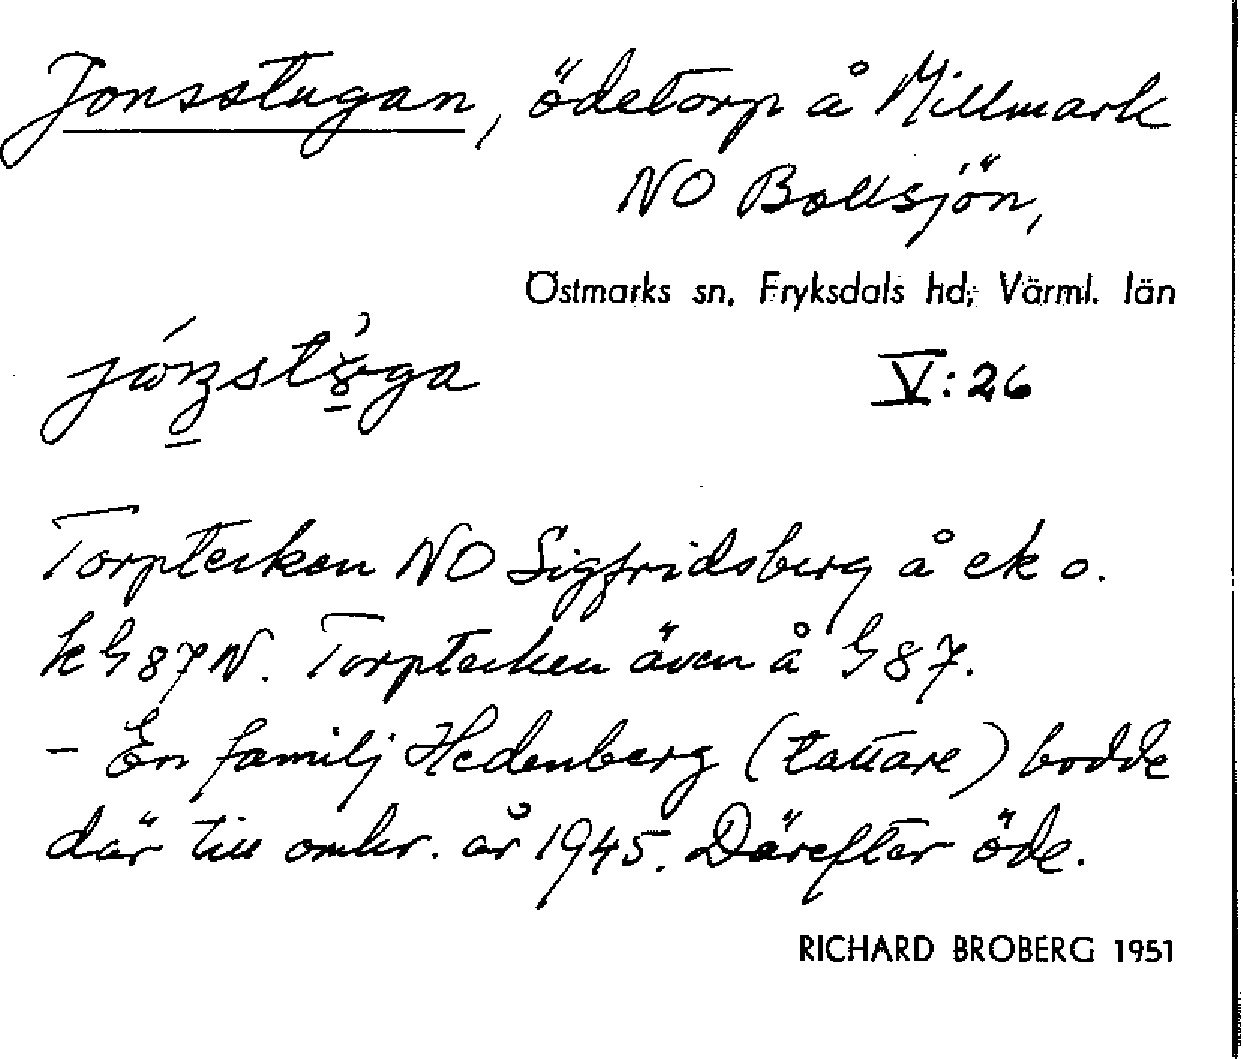 Jonsstugan, ödetorp å Millmark
NO Bollsjön,
Östmarks sn, Fryksdals hd, Värml. län
V:26
Torptecken NO Sigfridsberg å ek o.
k G 87 N. Torptecken även å G 87.
- En familj Hedenberg (tattare) bodde
där till omkr. år 1945. Därefter öde.
RICHARD BROBERG 1951